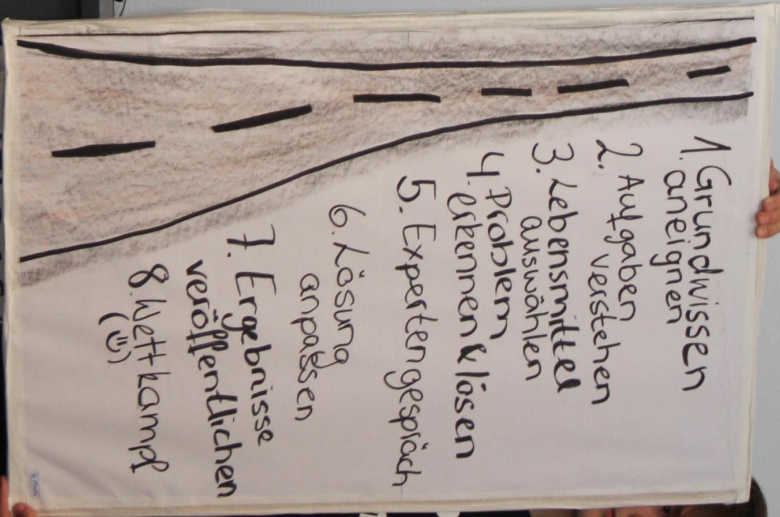 1. Grundwissen
aneignen
2. Aufgaben
verstehen
3. Lebensmittel
auswählen
4. Problem
erkennen & lösen
5. Expertengespräch
6. Lösung
anpassen
7. Ergebnisse
veröffentlichen
8. Wettkampf
(☺)